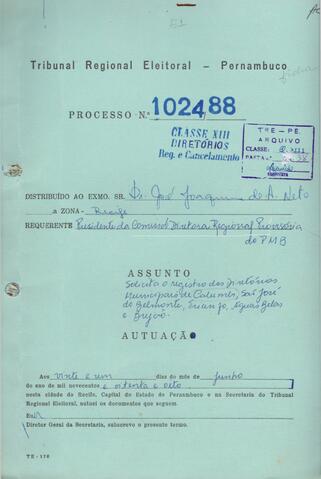 51
Tribunal Regional Eleitoral — Pernambuco
PROCESSO N.º 1024/88
CLASSE XIII
DIRETÓRIOS
Reg. e Cancelamento
TRE - PE.
ARQUIVO
CLASSE:
PASTA:
DISTRIBUÍDO AO EXMO. SR. Dr. José Joaquim de A. Neto
a ZONA - Recife
REQUERENTE Presidente da Comissão Diretora Regional Provisória
do PMB
ASSUNTO
Solicita o registro dos Diretórios
Municipais de Calumbi, São José
do Belmonte, Águas Belas
e Brejão.
AUTUAÇÃO
Aos vinte e um dias do mês de junho
do ano de mil novecentos e oitenta e oito,
nesta cidade do Recife, Capital do Estado de Pernambuco e na Secretaria do Tribunal
Regional Eleitoral, autuei os documentos que seguem.
Eu,
Diretor Geral da Secretaria, subscrevo o presente termo.
TE-176